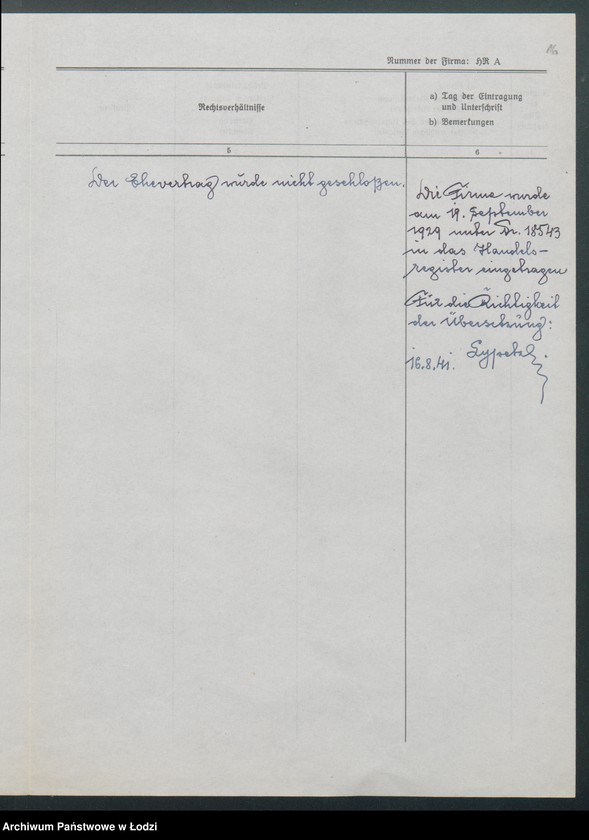 Nummer der Firma: HR A
Rechtsverhältnisse
a) Tag der Eintragung
und Unterschrift
b) Bemerkungen
5
6
Der Ehevertrag wurde nicht geschloßen.
Die Firma wurde
am 19. September
1929 unter Nr. 18543
in das Handels-
register eingetragen
Für die Richtigkeit
der Übersetzung:
16.8.41.
Archiwum Państwowe w Łodzi